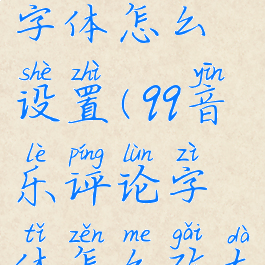 字体怎么
shè zhì yīn
设置(99音
lè píng lùn zì
乐评论字
tǐ zěn me gǎi dà
体怎么改大